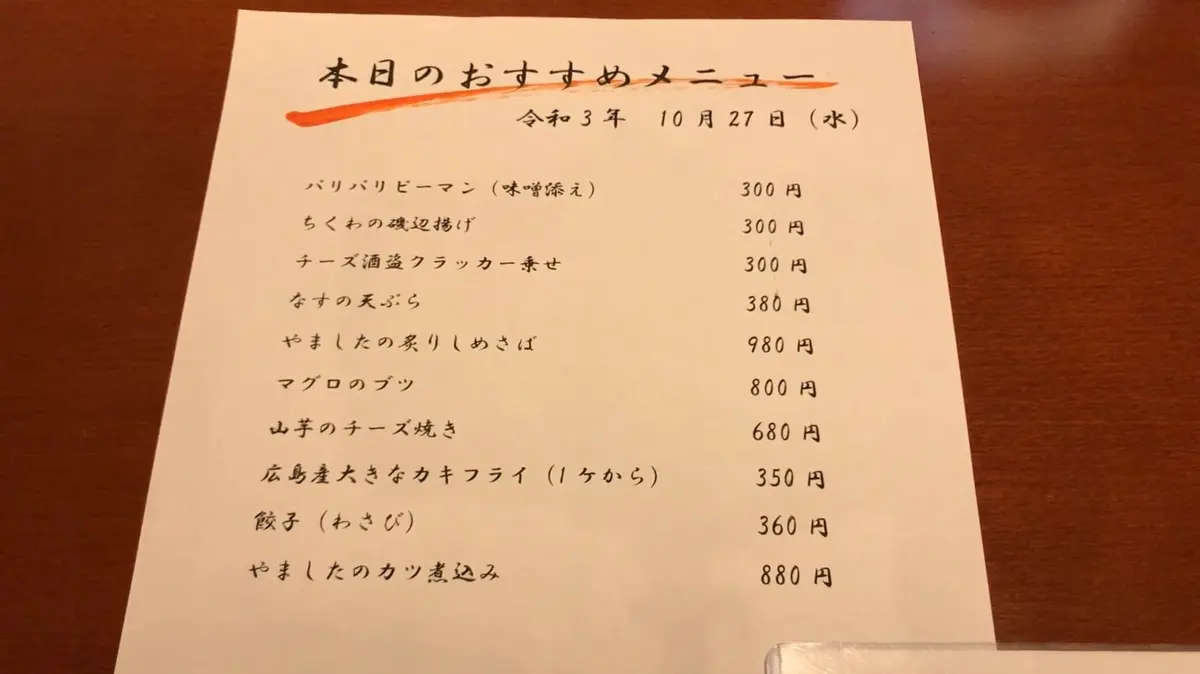 本日のおすすめメニュー
令和3年 10月27日（水）
パリパリピーマン（味噌添え） 300円
ちくわの磯辺揚げ 300円
チーズ酒盗クラッカー乗せ 300円
なすの天ぷら 380円
やましたの炙りしめさば 980円
マグロのブツ 800円
山芋のチーズ焼き 680円
広島産大きなカキフライ（1ケから） 350円
餃子（わさび） 360円
やましたのカツ煮込み 880円